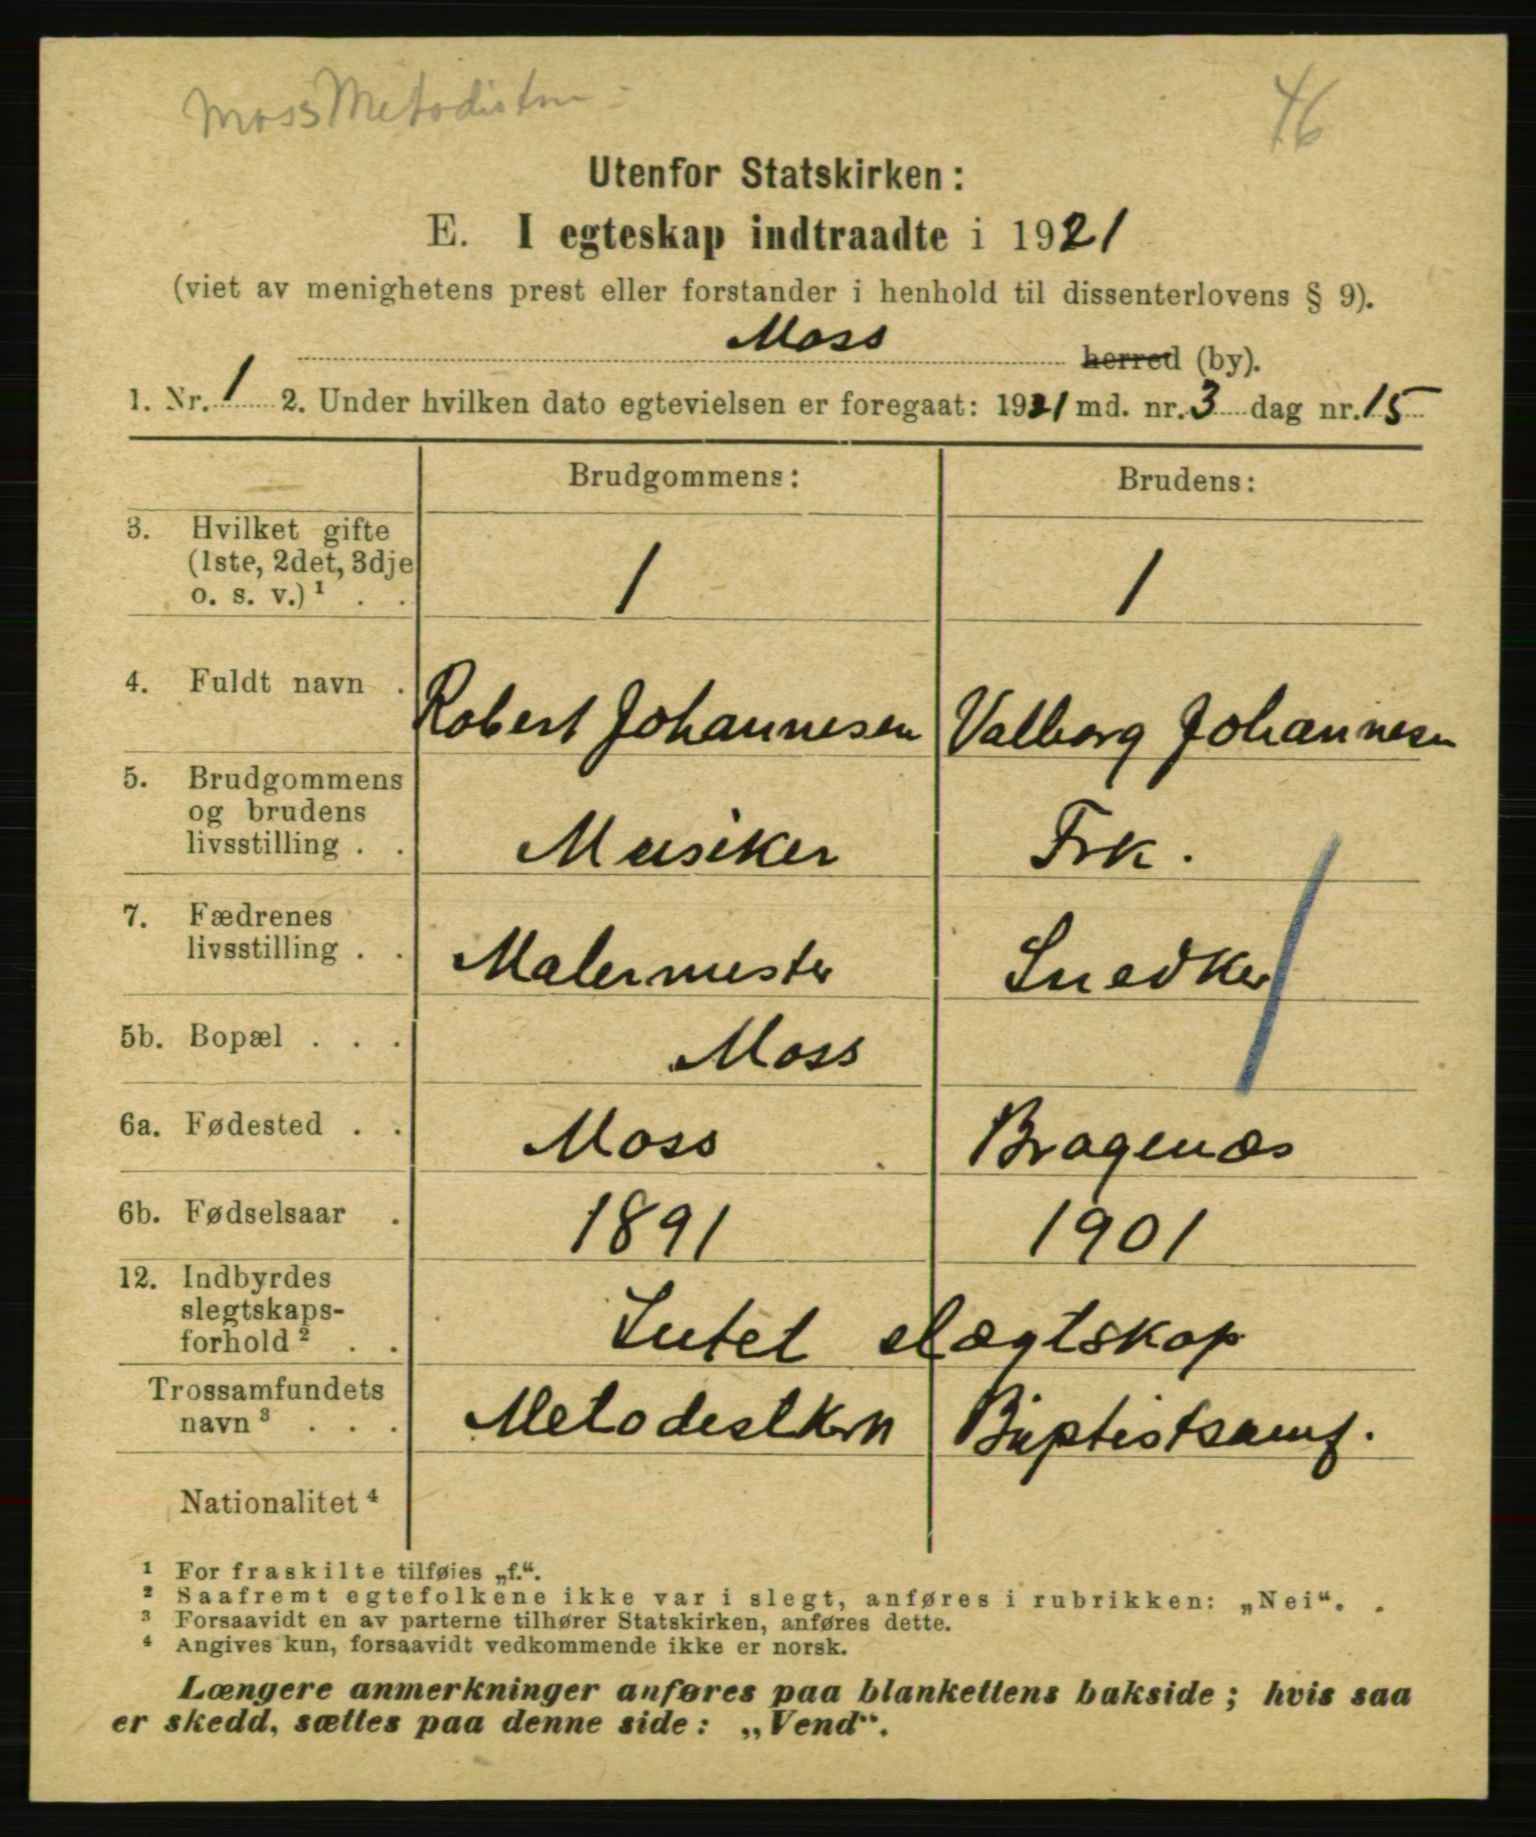 Moss Metodistm - 46
Utenfor Statskirken:
E. I egteskap indtraadte i 1921
(viet av menighetens prest eller forstander i henhold til dissenterlovens § 9).
Moss herred (by).
1. Nr. 1 2. Under hvilken dato egtevielsen er foregaat: 1921 md. nr. 3 dag nr. 15
Brudgommens: Brudens:
3. Hvilket gifte
(1ste, 2det, 3dje
o. s. v.) ¹ . . 1 1
4. Fuldt navn . Robert Johannesen Valborg Johannesen
5. Brudgommens
og brudens
livsstilling . . Musiker Frk.
7. Fædrenes
livsstilling . . Malermester Snedker
5b. Bopæl . . . Moss
6a. Fødested . . Moss Bragenæs
6b. Fødselsaar . 1891 1901
12. Indbyrdes
slegtskaps-
forhold ² . . Intet slægtskap
Trossamfundets
navn ³ . . . Metodistkirn Baptistsamf.
Nationalitet ⁴
¹ For fraskilte tilføies „f.“.
² Saafremt egtefolkene ikke var i slegt, anføres i rubrikken: „Nei“.
³ Forsaavidt en av parterne tilhører Statskirken, anføres dette.
⁴ Angives kun, forsaavidt vedkommende ikke er norsk.
Længere anmerkninger anføres paa blankettens bakside; hvis saa
er skedd, sættes paa denne side: „Vend“.